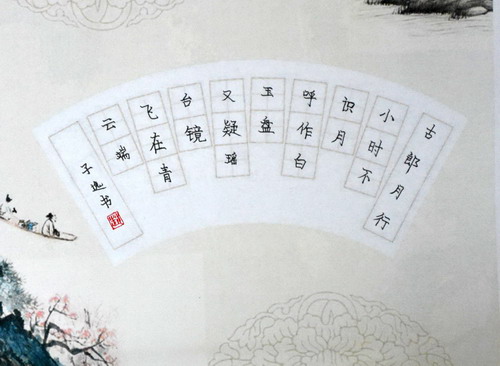 古郎月行
小时不
识月
呼作白
玉盘
又疑瑶
台镜
飞在青
云端
子逸书